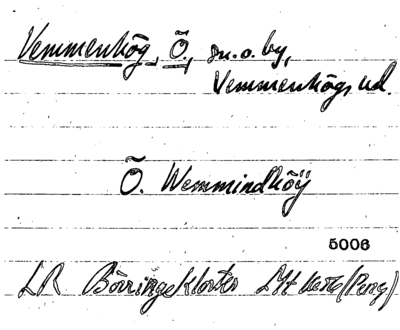 Vemmenhög, Ö., sn. o. by,
Vemmenhögs hd.
Ö. Wemmindhöÿ
5006
LR Börringekloster